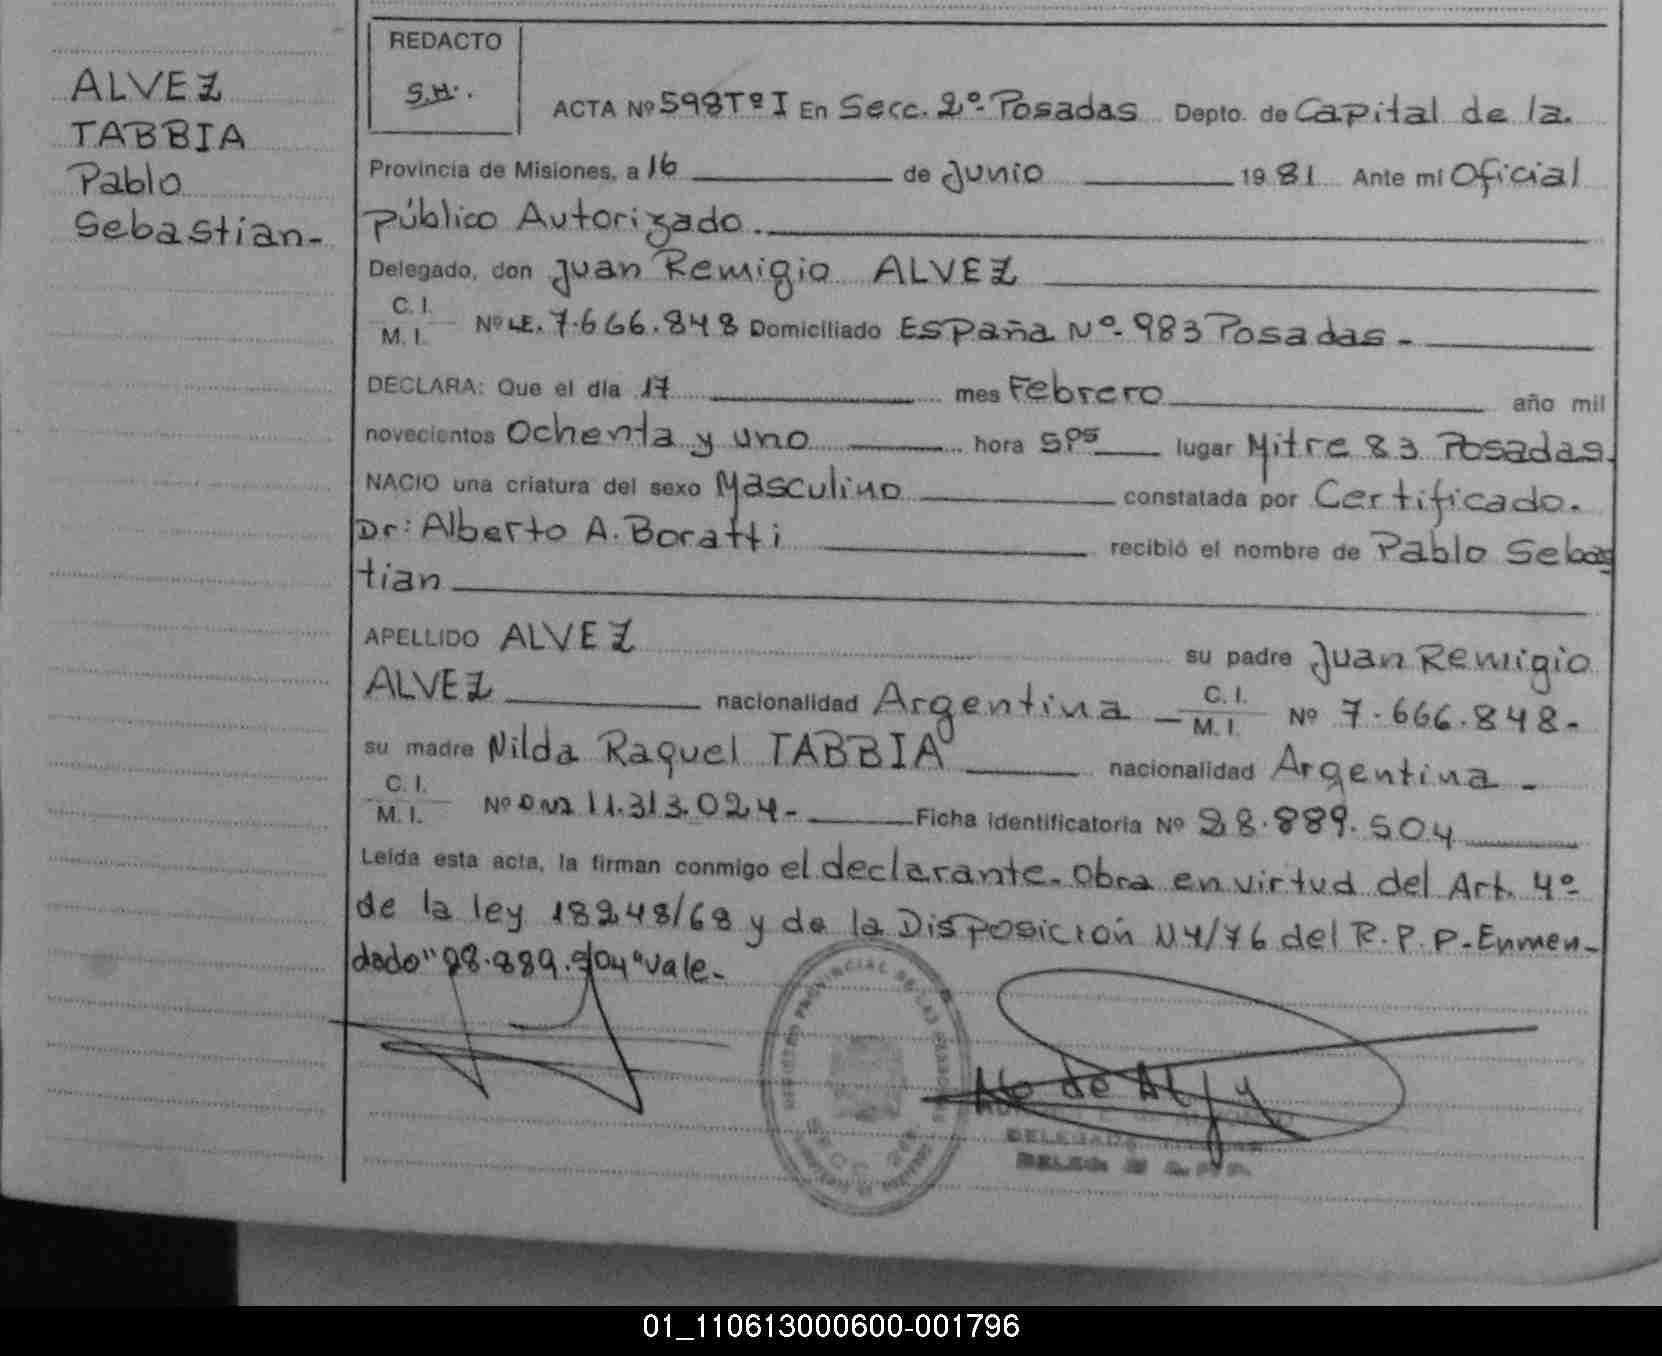 ALVEZ
TABBIA
Pablo
Sebastian-
REDACTO
S.H.
ACTA Nº 598 Tº I En Secc. 2º- Posadas Depto. de Capital de la
Provincia de Misiones, a 16 de Junio 1981 Ante mi Oficial
Público Autorizado.
Delegado, don Juan Remigio ALVEZ
C. I.
M. I. Nº LE. 7.666.848 Domiciliado España Nº- 983 Posadas-
DECLARA: Que el día 17 mes Febrero año mil
novecientos Ochenta y uno hora 5 lugar Mitre 83 Posadas.
NACIO una criatura del sexo Masculino constatada por Certificado.
Dr: Alberto A. Boratti recibió el nombre de Pablo Sebas
tian
APELLIDO ALVEZ su padre Juan Remigio
ALVEZ nacionalidad Argentina - C. I. M. I. Nº 7.666.848-
su madre Nilda Raquel TABBIA nacionalidad Argentina -
C. I.
M. I. Nº DNI 11.313.024- Ficha identificatoria Nº 28.889.504
Leída esta acta, la firman conmigo el declarante. Obra en virtud del Art. 4º
de la ley 18248/68 y de la Disposición N4/76 del R.P.P-Enmen-
dado "28.889.504" vale-
REGISTRO PROVINCIAL DE LAS PERSONAS
SECC.
DELEGADO
01_110613000600-001796